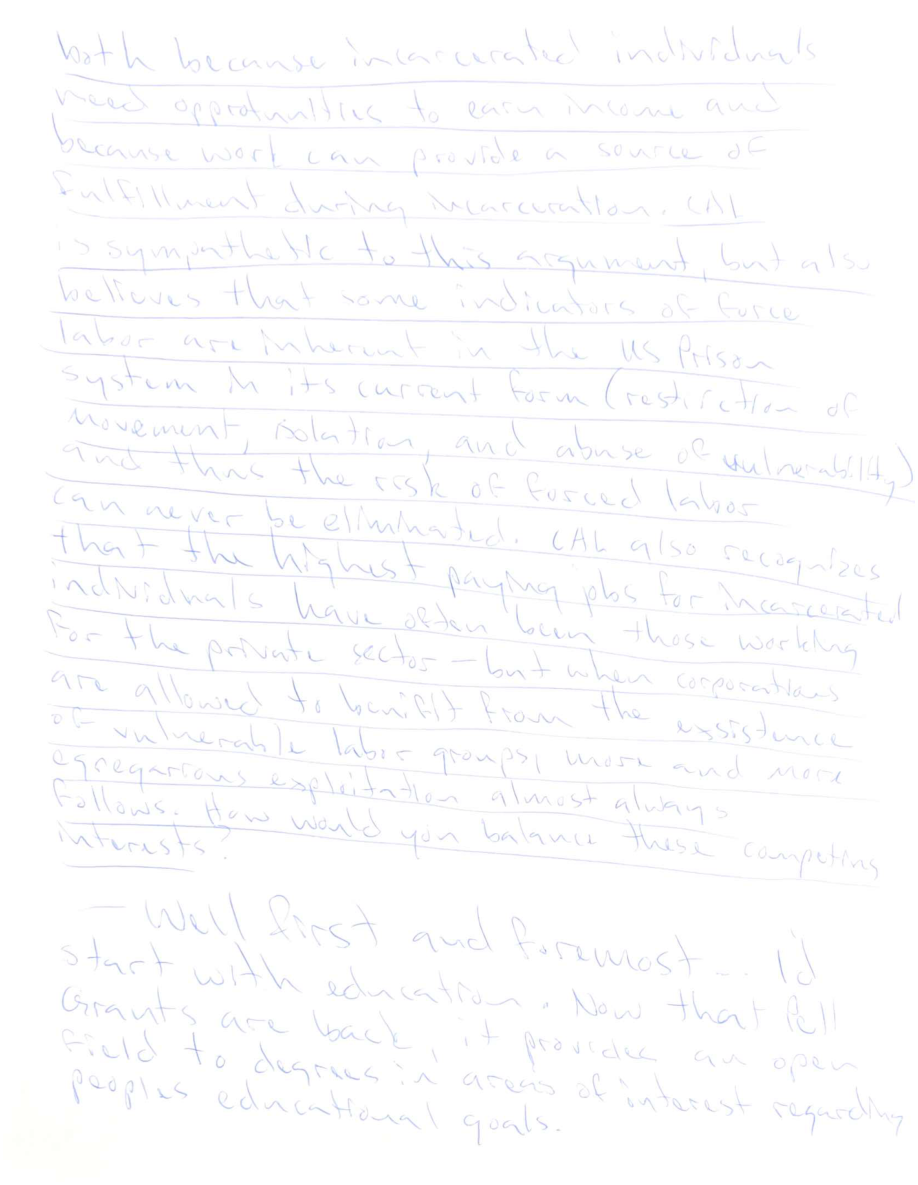 both because incarcerated individuals
need opprotunities to earn income and
because work can provide a source of
fulfillment during incarceration. CAL
is sympathetic to this argument, but also
believes that some indicators of force
labor are inherent in the US Prison
system in its current form (restriction of
movement, isolation, and abuse of vulnerability)
and thus the risk of forced labor
can never be eliminated. CAL also recognizes
that the highest paying jobs for incarcerated
individuals have often been those working
for the private sector - but when corporations
are allowed to benifit from the exsistence
of vulnerable labor groups, more and more
egregarious exploitation almost always
follows. How would you balance these competing
interests?
- Well first and foremost... I'd
start with education. Now that Pell
Grants are back, it provides an open
field to degrees in areas of interest regarding
peoples educational goals.